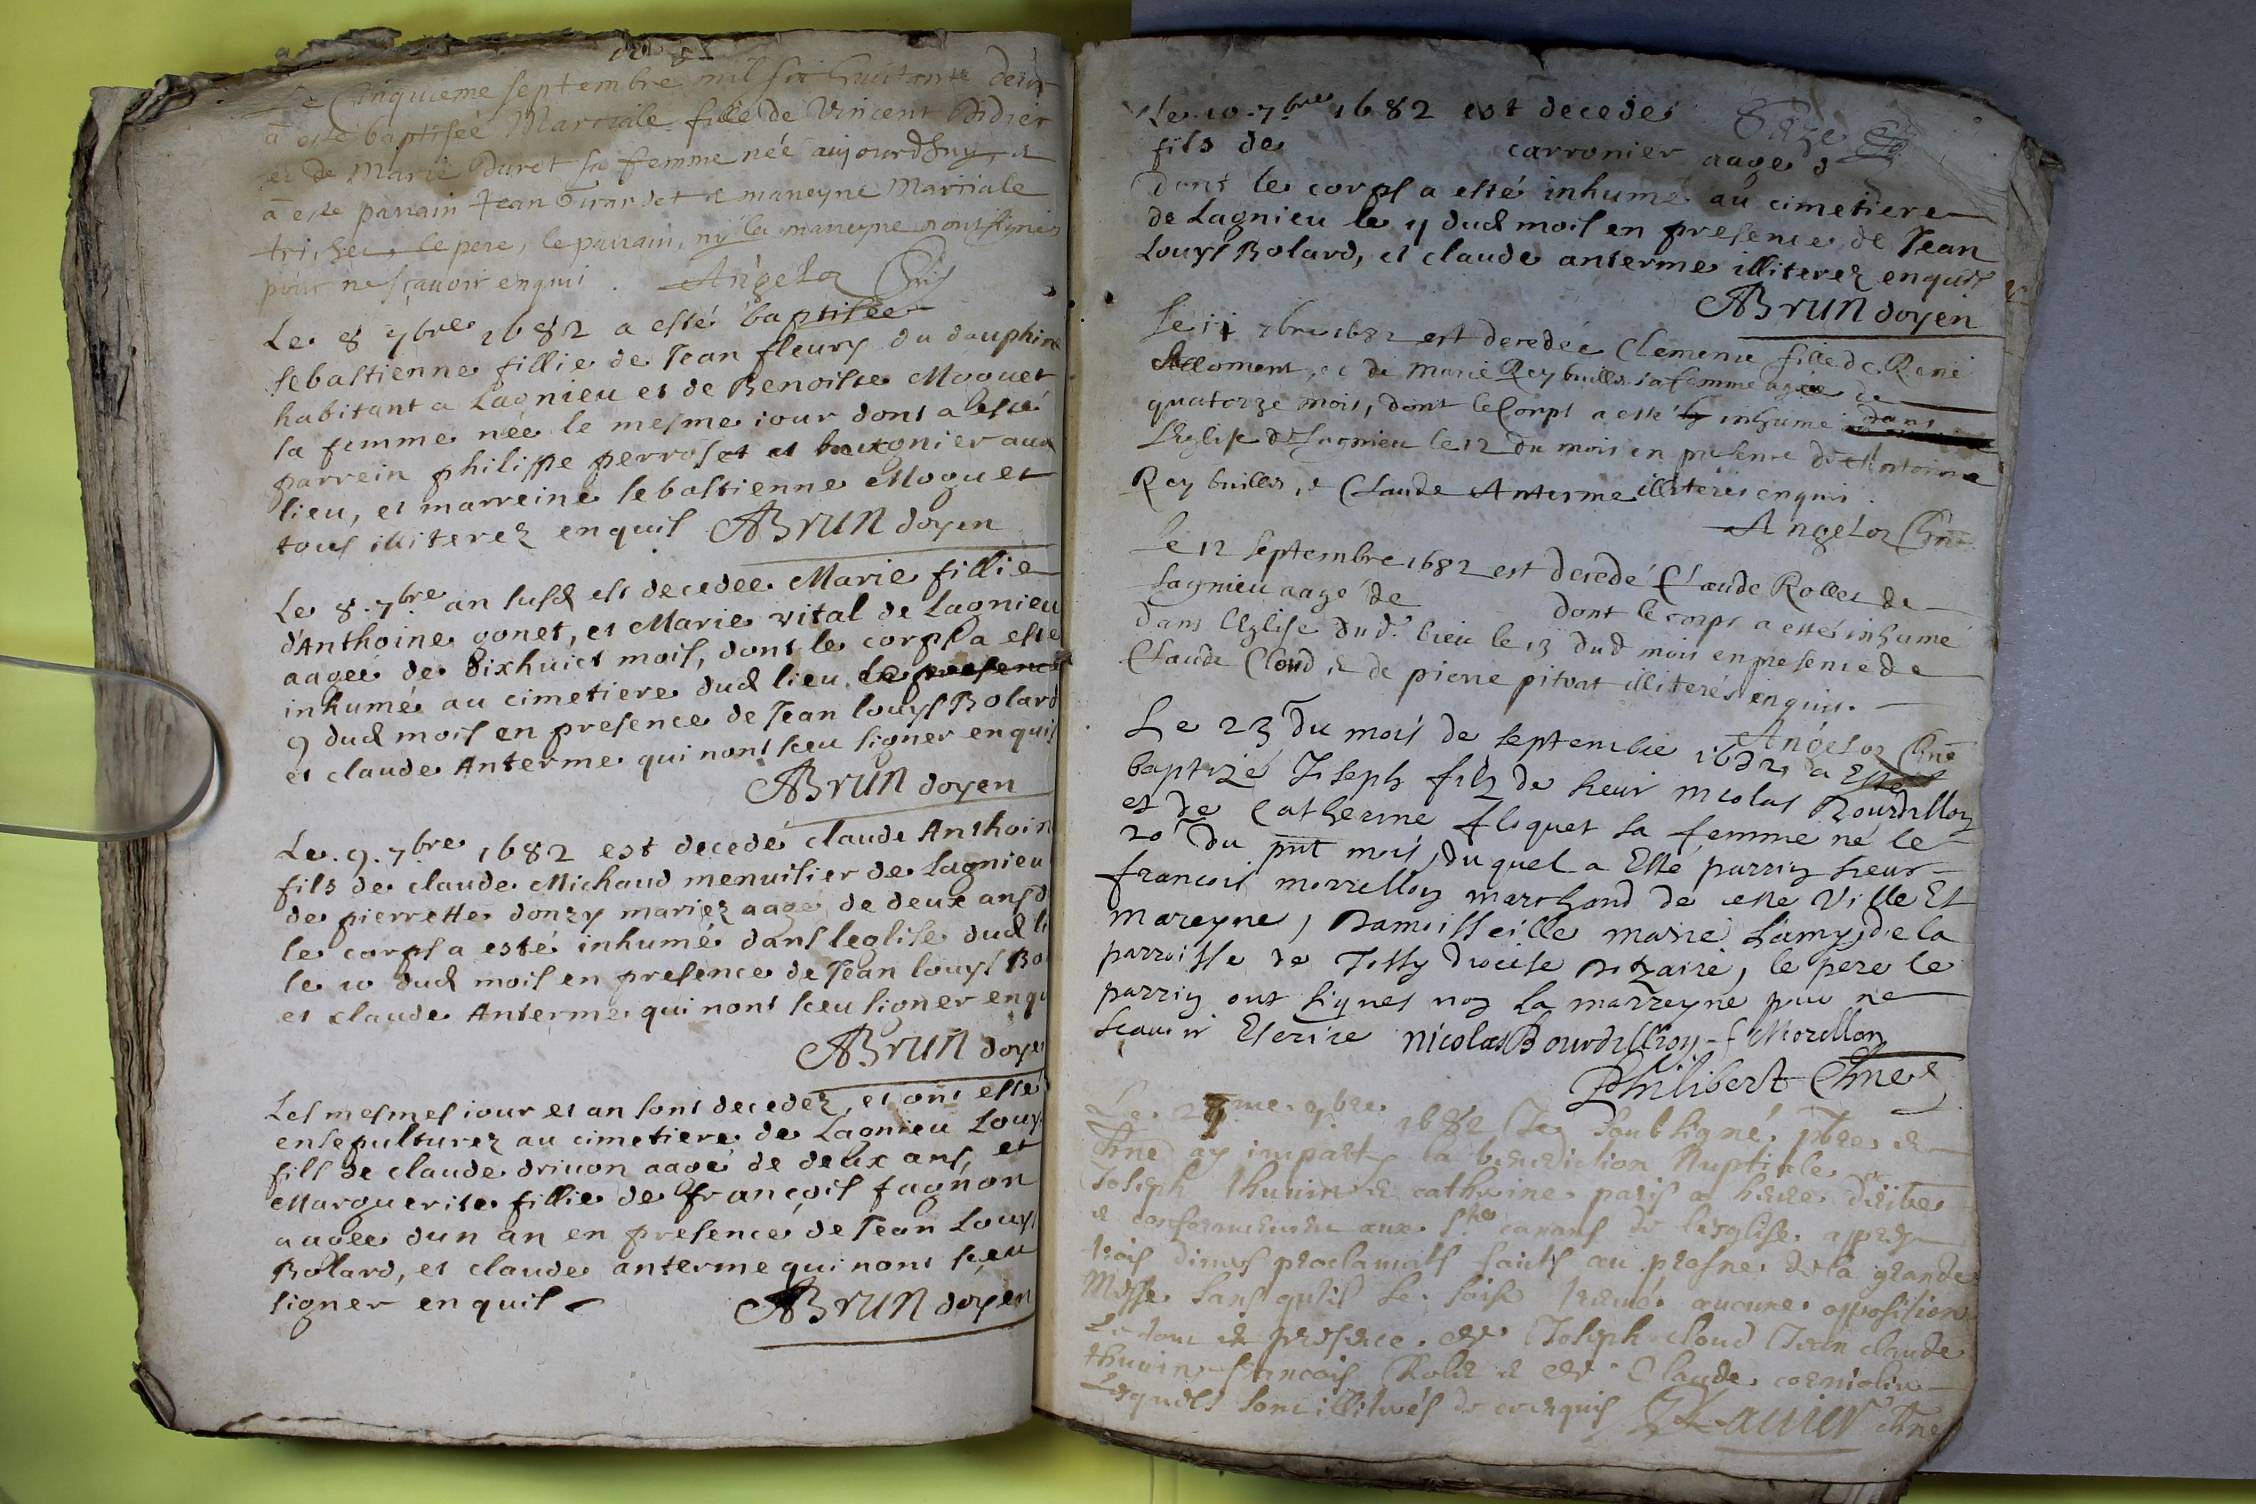 Le Cinquieme septembre mil six huictante deux
a esté baptisée Marciale fille de Vincent Didier
et de Marie Duret sa femme née aujourdhuy, et
a este parrain Jean Girardet et mareyne Marciale
le pere, le parrain, ny la mareyne nont signés
pour ne scavoir enquis. Angeloz
Le 8 7bre 1682 a esté baptisée
sebastienne fillie de Jean fleury du dauphiné
habitant a Lagnieu et de Benoiste Moquet
sa femme née le mesme iour dont a esté
parrein philippe perroset et audt
lieu, et marreine sebastienne Moquet
tous illiterez enquis ABrun doyen
Le 8. 7bre an susd est decedee Marie fillie
d'Anthoine gonet, et Marie vital de Lagnieu
aagee de dixhuict mois, dont le corps a esté
inhumé au cimetiere dud lieu en presence
9 dud mois en presence de Jean louys Bolard
et claude Anterme qui nont sceu signer enquis
ABrun doyen
Le. 9. 7bre 1682 est decedé claude Anthoin
fils de claude Michaud menuisier de Lagnieu
de pierrette donzy mariez aagé de deux ans d
le corps a esté inhumé dans leglise dud li
le 10 dud mois en presence de Jean louys Bo
et claude Anterme qui nont sceu signer enqu
ABrun doyen
Les mesmes iour et an sont decedez, et ont esté
ensepulturez au cimetiere de Lagnieu Louys
fils de claude driuon aagé de deux ans, et
Marguerite fillie de françois fagnon
aagee dun an en presence de Jean Louys
Bolard, et claude anterme qui nont sceu
signer enquis ABrun doyen
Le. 10. 7bre 1682 est decedé
fils de carronier aagé
dont le corps a esté inhumé au cimetiere
de Lagnieu le 11 dud mois en presence de Jean
Louys Bolard, et claude anterme illiterez enquis
ABrun doyen
Le 11 7bre 1682 est decedée Clemence fille de René
Allomont, et de Marie Rey buillet sa femme agée de
quatorze mois, dont le Corps a esté inhumé dans
LEglise de Lagnieu le 12 du mois en presence de Antoine
Rey buillet, et Claude Anterme illiterés enquis.
Angeloz
Le 12 septembre 1682 est decedé Claude Rollet de
Lagnieu aagé de dont le corps a esté inhumé
dans lEglise dud. lieu le 13 dud mois en presence de
Claude Cloud et de pierre pitrat illiterés enquis.
Angeloz
Le 23 du mois de septembre 1682 a Esté
baptizé Joseph filz de sieur nicolas Bourdillon
et de Catherine fliquet sa femme né le
20 du pnt mois, du quel a Esté parrin sieur
francois morrellon marchand de cette Ville Et
mareyne, damoisseille marie Lamy, de la
parroisse de Jssy diocese , le pere le
parrin ont signes non la marreyne pour ne
scauoir Escrire nicolas Bourdillon f Morellon
Philibert
Le 29me. 7bre. 1682 Je soubsigné, ptre et
ay imparty la benediction Nuptiale
Joseph thuuin et catherine paris a heure deübe
et conformement aux sts canons de lesglise, appres
trois dines proclamats faicts au prosne de la grande
Messe sans quil se soist treuué aucune opposition
Le tout en presence de Joseph cloud Jean claude
thuuin francois Rolet et de Claude cormolin
Lesquels sont illiterés de ce enquis